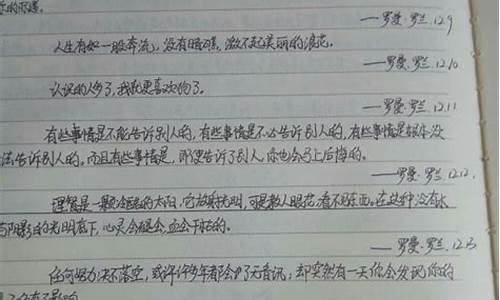 的形迹。
——罗曼·罗兰.12.9
人生有如一股奔流,没有暗礁,激不起美丽的浪花。
——罗曼·罗兰.12.10
认识的人多了,我就更喜欢狗了。
——罗曼·罗兰.12.11
有些事情是不能告诉别人的,有些事情是不必告诉别人的,有些事情是根本没
法告诉别人的,而且有些事情是,即使告诉了别人,你也会马上后悔的。
——罗曼·罗兰.12.12.
理智是一颗冷酷的太阳,它放射光明,可是教人眼花,看不见东西。在这种没有水
与阴影的光明底下,心灵会褪色,血会干枯的。
——罗曼·罗兰.12.13
任何努力决不落空,或许许多年都会了无音讯;却突然有一天你会发现你的